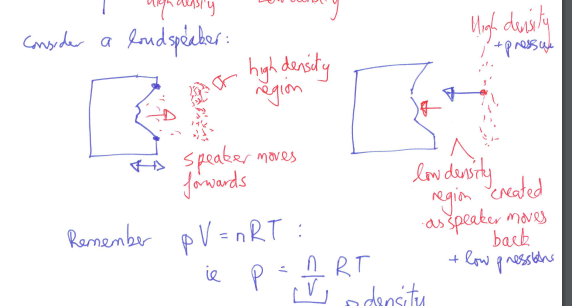 high density
Consider a loudspeaker:
high density
region
speaker moves
forwards
High density
+ pressure
low density
region created
as speaker moves
back
+ low pressure
Remember pV = nRT :
ie p = n/V RT
density